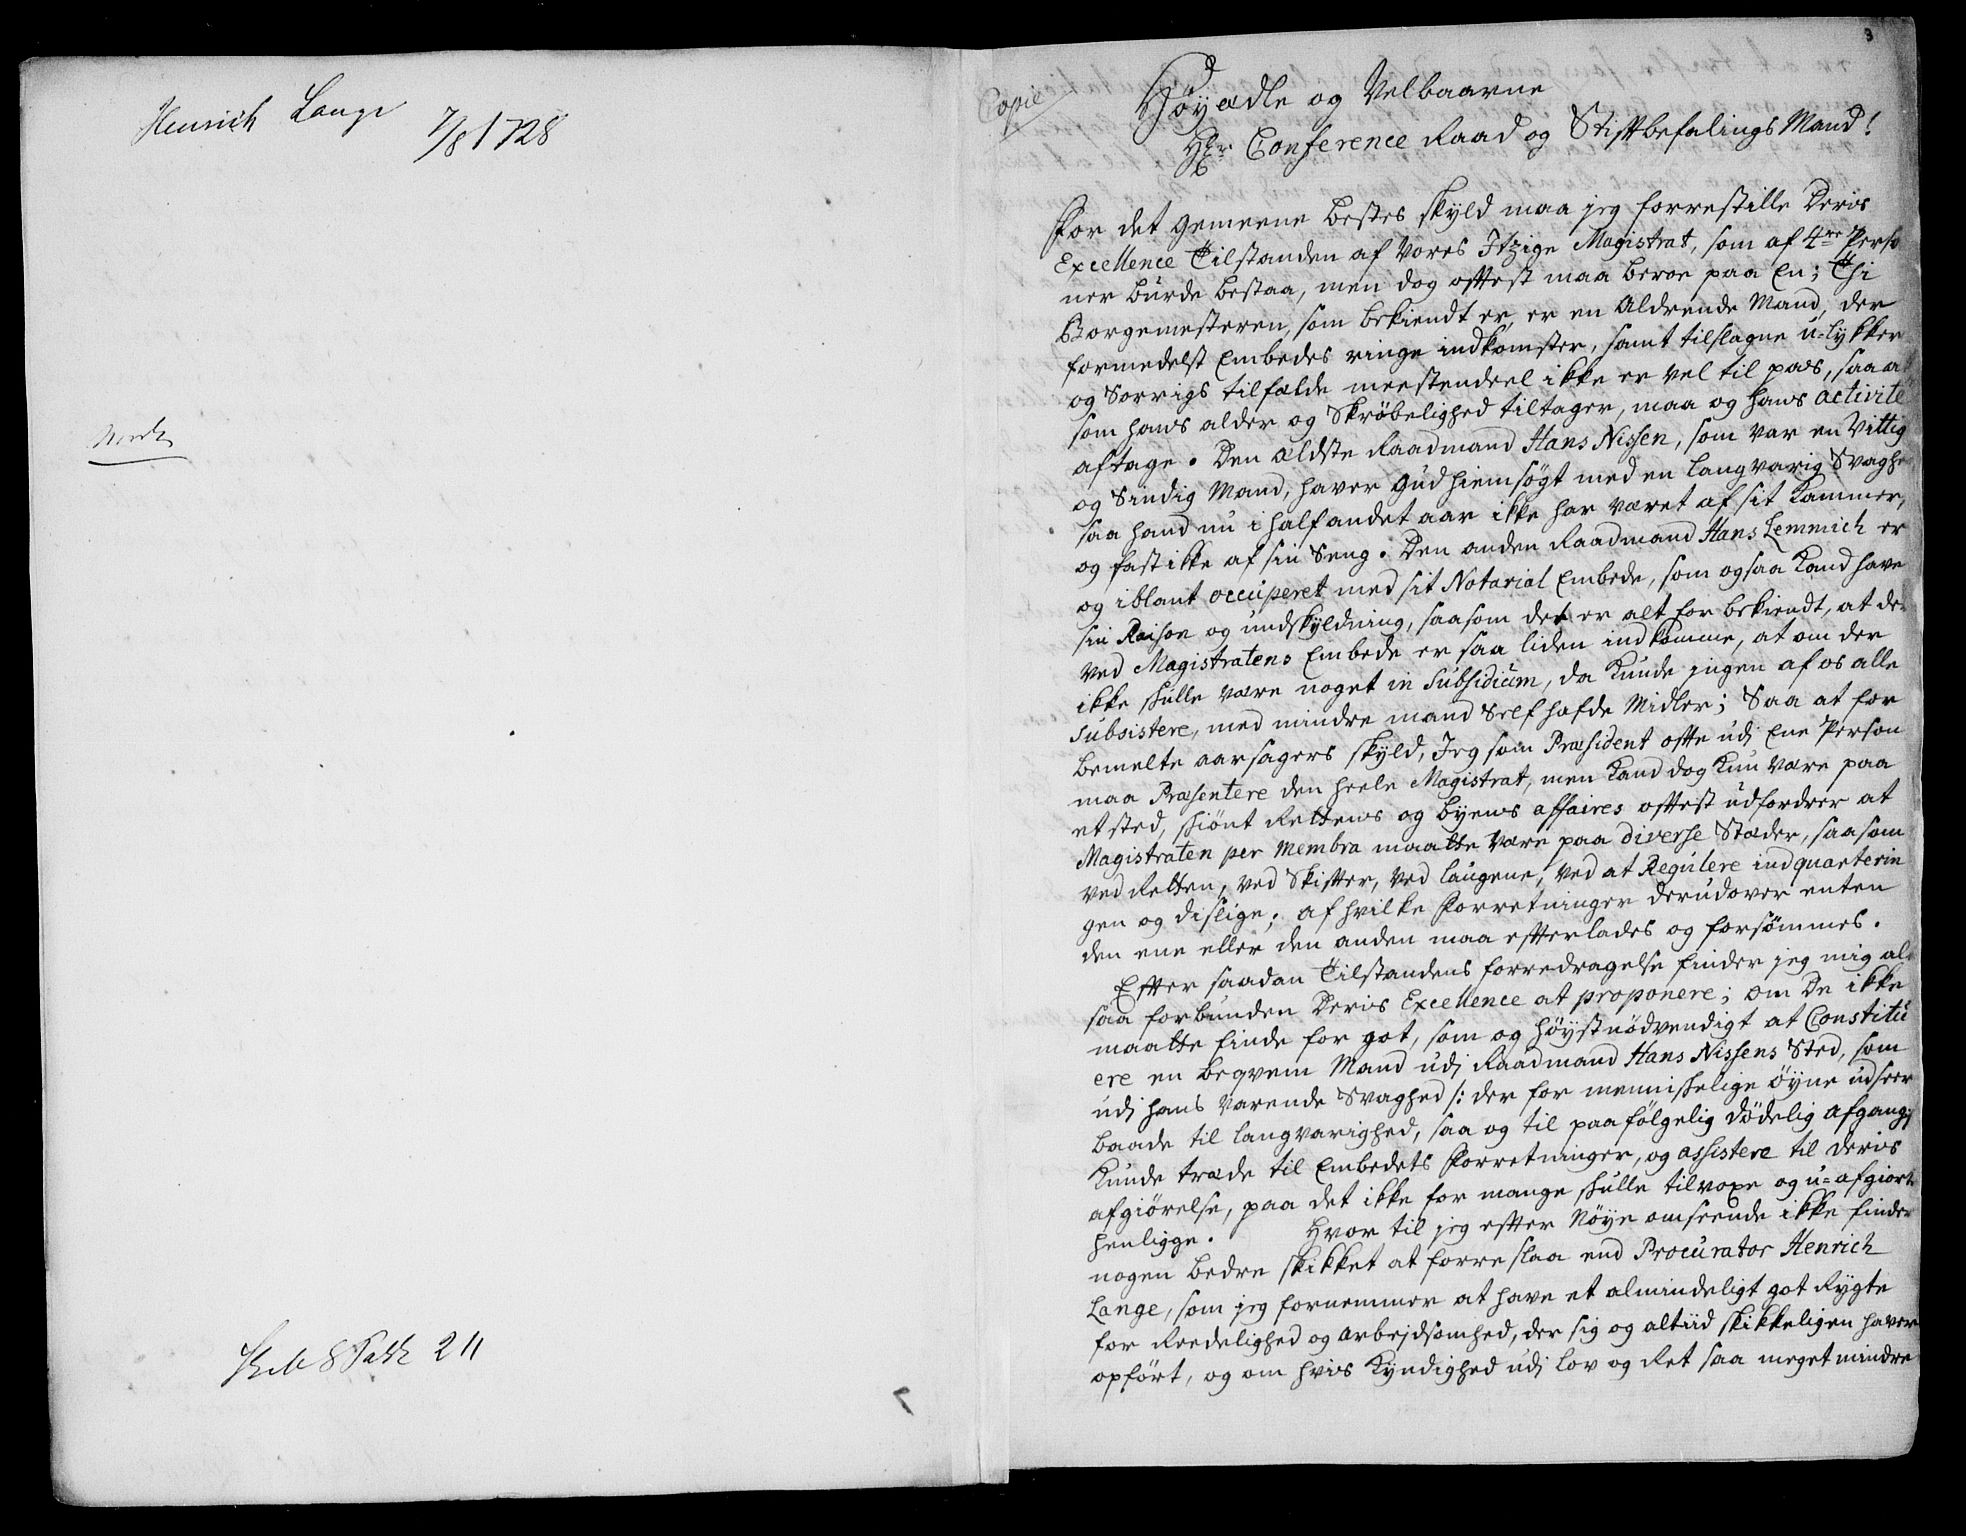 Henrich Lange
7/8 1728
3
Copie
Höyædle og Velbaarne
Hr. Conference Raad og Stiftbefalings Mand!
For det gemeene bestes skyld maa jeg forrestille Deris
Excellence Tilstanden af Vores Itzige Magistrat, som af 4re Perso
ner burde bestaa, men dog oftest maa beroe paa En; Thi
Borgemesteren, som bekiendt er, er en Aldrende Mand, der
formedelst Embedes ringe indkomster, samt tilslagne u-lykker
og Sorrigs tilfælde meestendeel ikke er vel til pas, saa at
som hans alder og Skröbelighed tiltager, maa og hans activite
aftage. Den ældste Raadmand Hans Nissen, som var en Vittig
og Sindig Mand, haver Gud hiemsögt med en langvarig Svaghed
saa hand nu i half andet aar ikke har været af sit Kammer,
og fast ikke af sin Seng. Den anden Raadmand Hans Lemmich er
og iblant occuperet med sit Notarial Embede, som ogsaa kand have
sin Raison og undskyldning, saasom det er alt for bekiendt, at de
ved Magistratens Embede er saa liden indkomme, at om der
ikke skulle være noget in Subsidium, da kunde jngen af os alle
Subsistere, med mindre mand Self hafde Midler; Saa at for
bemelte aarsagers skyld, Jeg som Præsident ofte udj Een Person
maa Præsentere den heele Magistrat, men kand dog kun være paa
et sted, skiönt Rettens og byens affaires oftest udfordrer at
Magistraten per Membra maatte være paa diverse Stæder, saasom
ved Retten, ved Skifter, ved laugene, ved at Regulere indquarterin
gen og dislige; af hvilke Forretninger derudover enten
den ene eller den anden maa efterlades og forsömmes.
Efter saadan Tilstandens forredragelse finder jeg mig al
saa forbunden Deris Excellence at proponere; om De ikke
maatte finde for got, som og höystnödvendigt at Constitu
ere en beqvem Mand udj Raadmand Hans Nissens Sted, som
udj hans varende Svaghed /: der for menniskelige öyne udseer
baade til langvarighed, saa og til paafölgelig dödelig afgang :/
kunde træde til Embedets Forretninger, og assistere til deris
afgiörelse, paa det ikke for mange skulle tilvoxe og u-afgiort
henligge. Hvor til jeg efter nöye omseende ikke finder
nogen bedre skikket at forreslaa end Procurator Henrich
Lange, som jeg fornemmer at have et almindeligt got Rygte
for Reedelighed og Arbejdsomhed, der sig og altiid skikkeligen haver
opfört, og om hvis kyndighed udj lov og Ret saa meget mindre